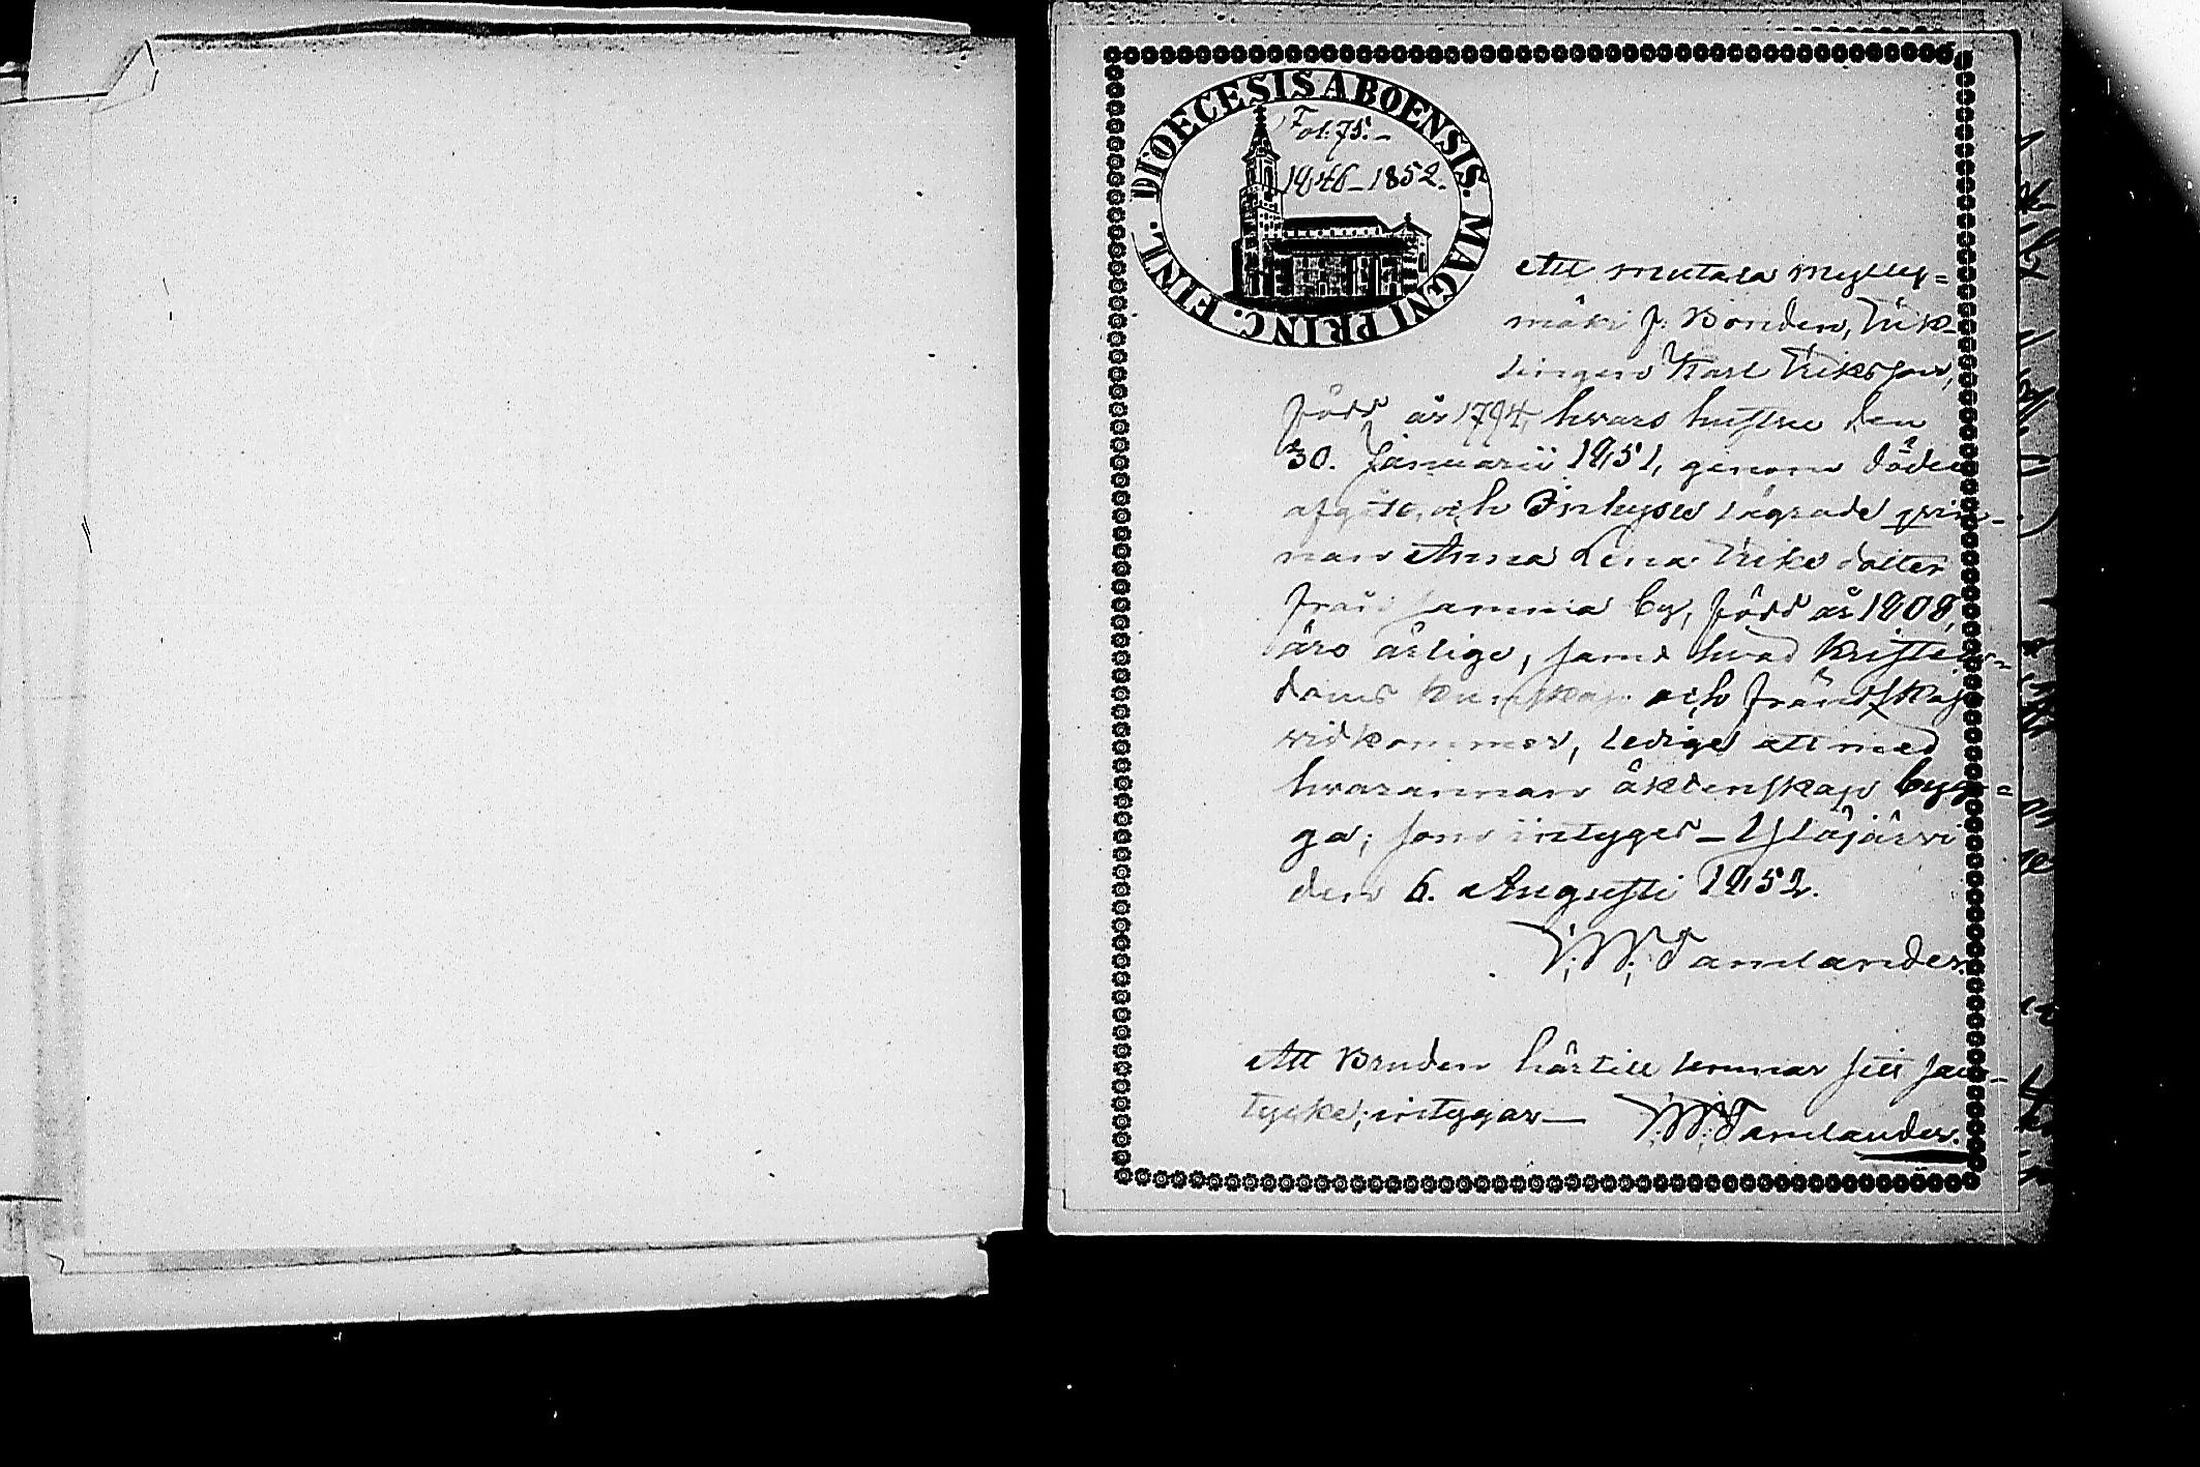 DIOECESIS ABOENSIS. MAGNI PRINC. FINL.
Fol. 75. –
1846–1852.
Att Mutala Mylly=
mäki f. Bonden, Enk-
lingen Karl Eriksson,
född år 1794, hvars hustru den
30. Januarii 1851, genom döden
afgått, och Inhyses lägrade qvin-
nan Anna Lena Eriksdotter
från samma by, född år 1808,
äro ärlige, samt hvad Kristen=
doms kunskap och frändskap
vidkommer, ledige att med
hvarannan äktenskap byg=
ga; som intyges – Ylöjärvi
den 6. Augusti 1852.
Tamlander.
Att Bruden härtill lemnar sitt sam-
tycke; intygar — Tamlander.